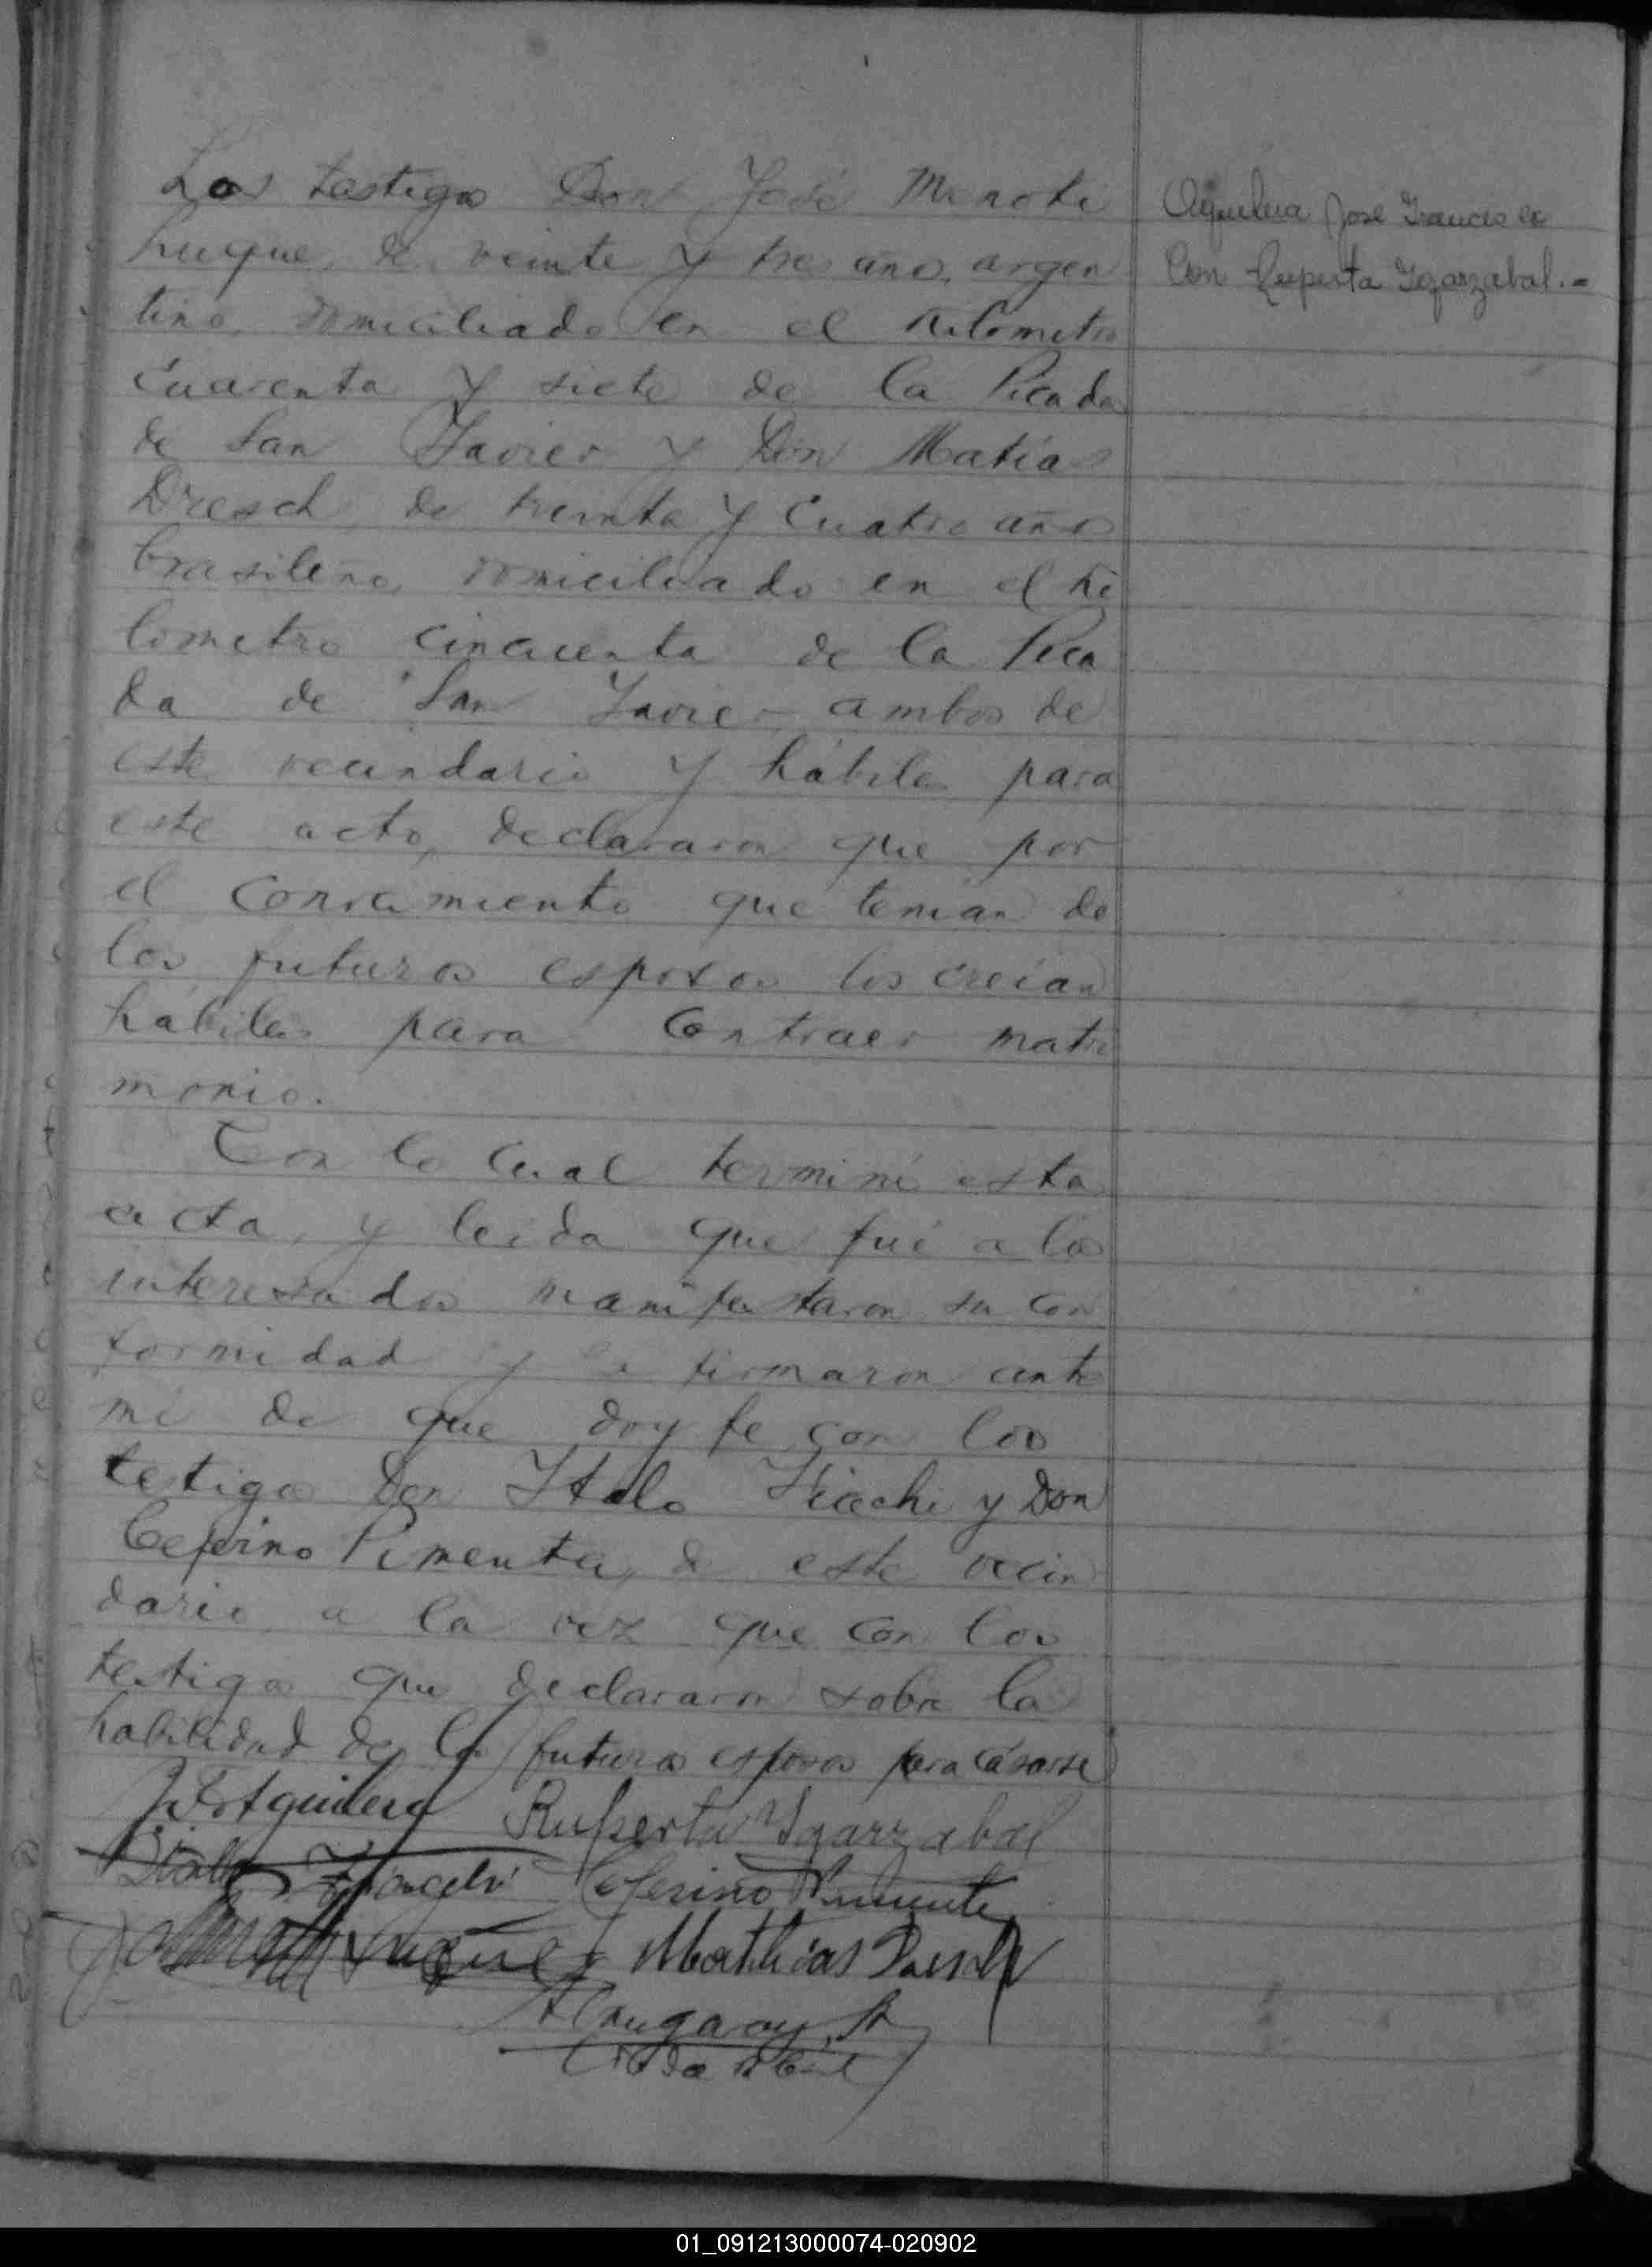 Los testigos Don José Menoti
Luque, de veinte y tres años, argen
tino, domiciliado en el kilometro
cuarenta y siete de la Picada
de San Javier y Don Matías
Dresch, de treinta y cuatro años
brasileño, domiciliado en el ki
lometro cincuenta de la Pica
da de San Javier ambos de
este vecindario y hábiles para
este acto, declararon que por
el conocimiento que tenían de
los futuros esposos los creían
hábiles para contraer matri
monio.
Con lo cual terminé esta
acta, y leida que fué a los
interesados manifestaron su con
formidad y la firmaron ante
mi de que doy fe con los
testigos Don Italo y Don
Ceferino Pimenta, de este vecin
dario a la vez que con los
testigos que declararon sobre la
habilidad de los futuros esposos para casarse
J. F. Aguilera Ruperta Ygarzabal
Ceferino Pimenta
Luque Mathias Dresch
Aguilera José Francisco
Con Ruperta Igarzabal.=
01_091213000074-020902